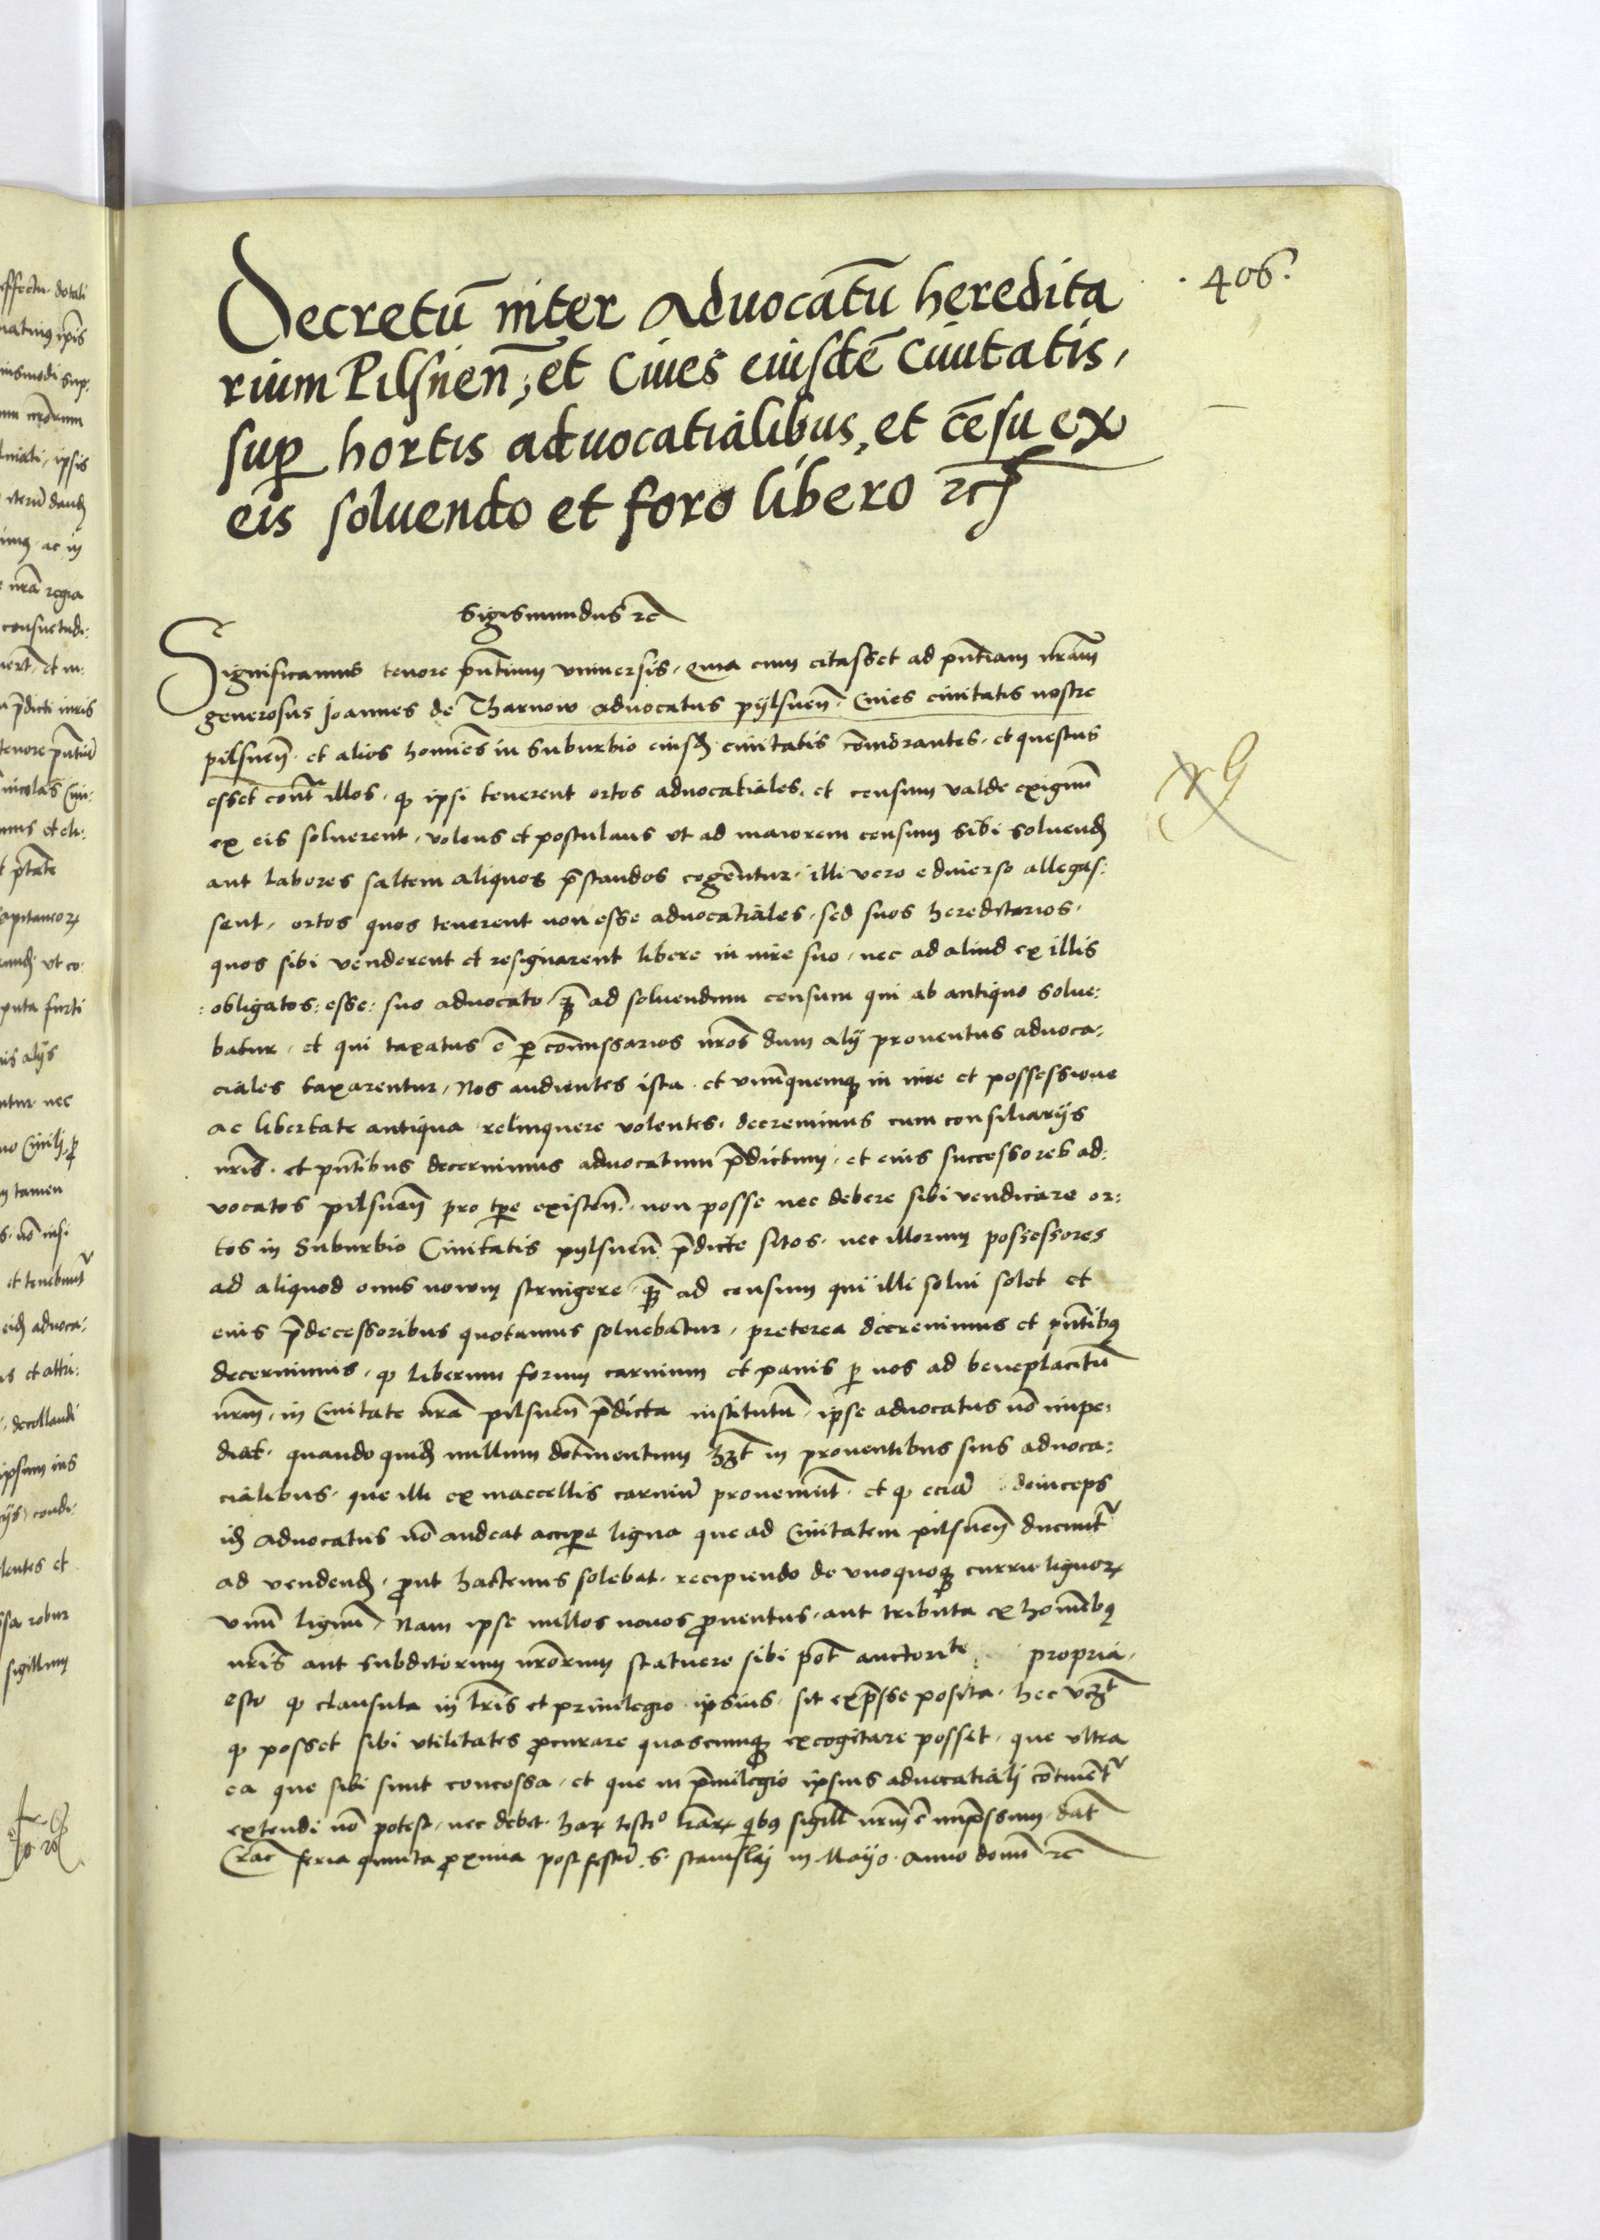 406.
Decretū inter Advocatū heredita
rium Pilsneñ, et Ciues eiusdē Ciuitatis,
suꝑ hortis aduocatialibus, et cēsu ex
eis soluendo et foro libero ⁊cꝭ
Sigismundus ⁊c
Significamus tenore p̄ntium vniuersis, Quia cum citasset ad p̄ntiam nr̄am
generosus Joannes de Tharnow aduocatus pylsneñ. Ciues ciuitatis nostre
pilsneñ. et alios homīes in Suburbio eiusđ ciuitatis cōmorantes, et questus
esset cont̄ illos, ꝙ ipsi tenerent ortos aduocatiales, et censum valde exiguū
ex eis soluerent, volens et postulans vt ad maiorem censum sibi soluenđ
aut labores saltem aliquos p̄standos cogērentur, illi vero ediuerso allegas:
sent, ortos quos tenerent non esse aduocatiales, sed suos hereditarios,
quos sibi venderent et resignarent libere in iure suo, nec ad aliud ex illis
:obligatos: esse: suo aduocato, qꝫ ad soluendum censum qui ab antiquo solue:
batur, et qui taxatus ē ꝑ com̄issarios nr̄os dum alij prouentus aduoca:
ciales taxarentur, Nos audientes ista, et vnūquemqꝫ in iure et possessione
ac libertate antiqua relinquere volentes, decreuimus cum consiliarijs
nr̄is, et p̄ntibus decernimus aduocatum p̄dictum, et eius successores ad:
vocatos pilsneñ pro tꝑe existeñ. non posse nec debere sibi vendicare or:
tos in Suburbio Ciuitatis pylsneñ p̄dicte sitos, nec illorum possessores
ad aliquod onus nouum stringere, qꝫ ad censum qui illi solui solet et
eius p̄decessoribus quotannis soluebatur, preterea decreuimus et p̄ntibꝰ
decernimus, ꝙ liberum forum carnium et panis ꝑ nos ad beneplacitū
nr̄m, in Ciuitate nr̄a pilsneñ p̄dicta institutū, ipse aduocatus nō impe:
diat, quando quiđ nullum detrimentum hꝫt in prouentibus suis aduoca:
cialibus, que illi ex maccellis carniū proueniūt, et ꝙ eciā deinceps
iđ Aduocatus nō audeat accipe ligna que ad Ciuitatem pilsneñ ducūtʳ
ad vendenđ, prout hactenus solebat, recipiendo de vnoquoqꝫ curru lignoꝝ
vnū lignū, Nam ipse nullos nouos prouentus, aut tributa ex homībꝰ
nr̄is aut subditorum nr̄orum statuere sibi pōt auctorite propria,
esto ꝙ clausula in lr̄is et priuilegio ipsius, sit exp̄sse posita, hec vꝫt
ꝙ posset sibi vtilitates procurare quascunqꝫ excogitare posset, que vltra
ea que sibi sunt concessa, et que in priuilegio ipsius aduocatiali cōtinentʳ
extendi nō potest, nec debet. haꝝ testio lr̄aꝝ quibꝰ sigill nr̄m ē imp̄ssum. dat̄
Crac̄ feria quinta proxima post festū S. Stanislaj in Mayo Anno domī ⁊c